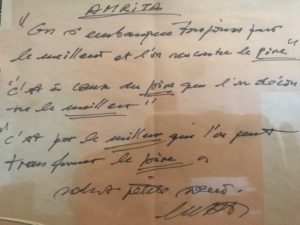 AMRITA
"On s'embarque toujours pour
le meilleur et l'on rencontre le pire"
"c'est à cause du pire que l'on
le meilleur"
"c'est par le meilleur que l'on peut
transformer le pire"
salut petite